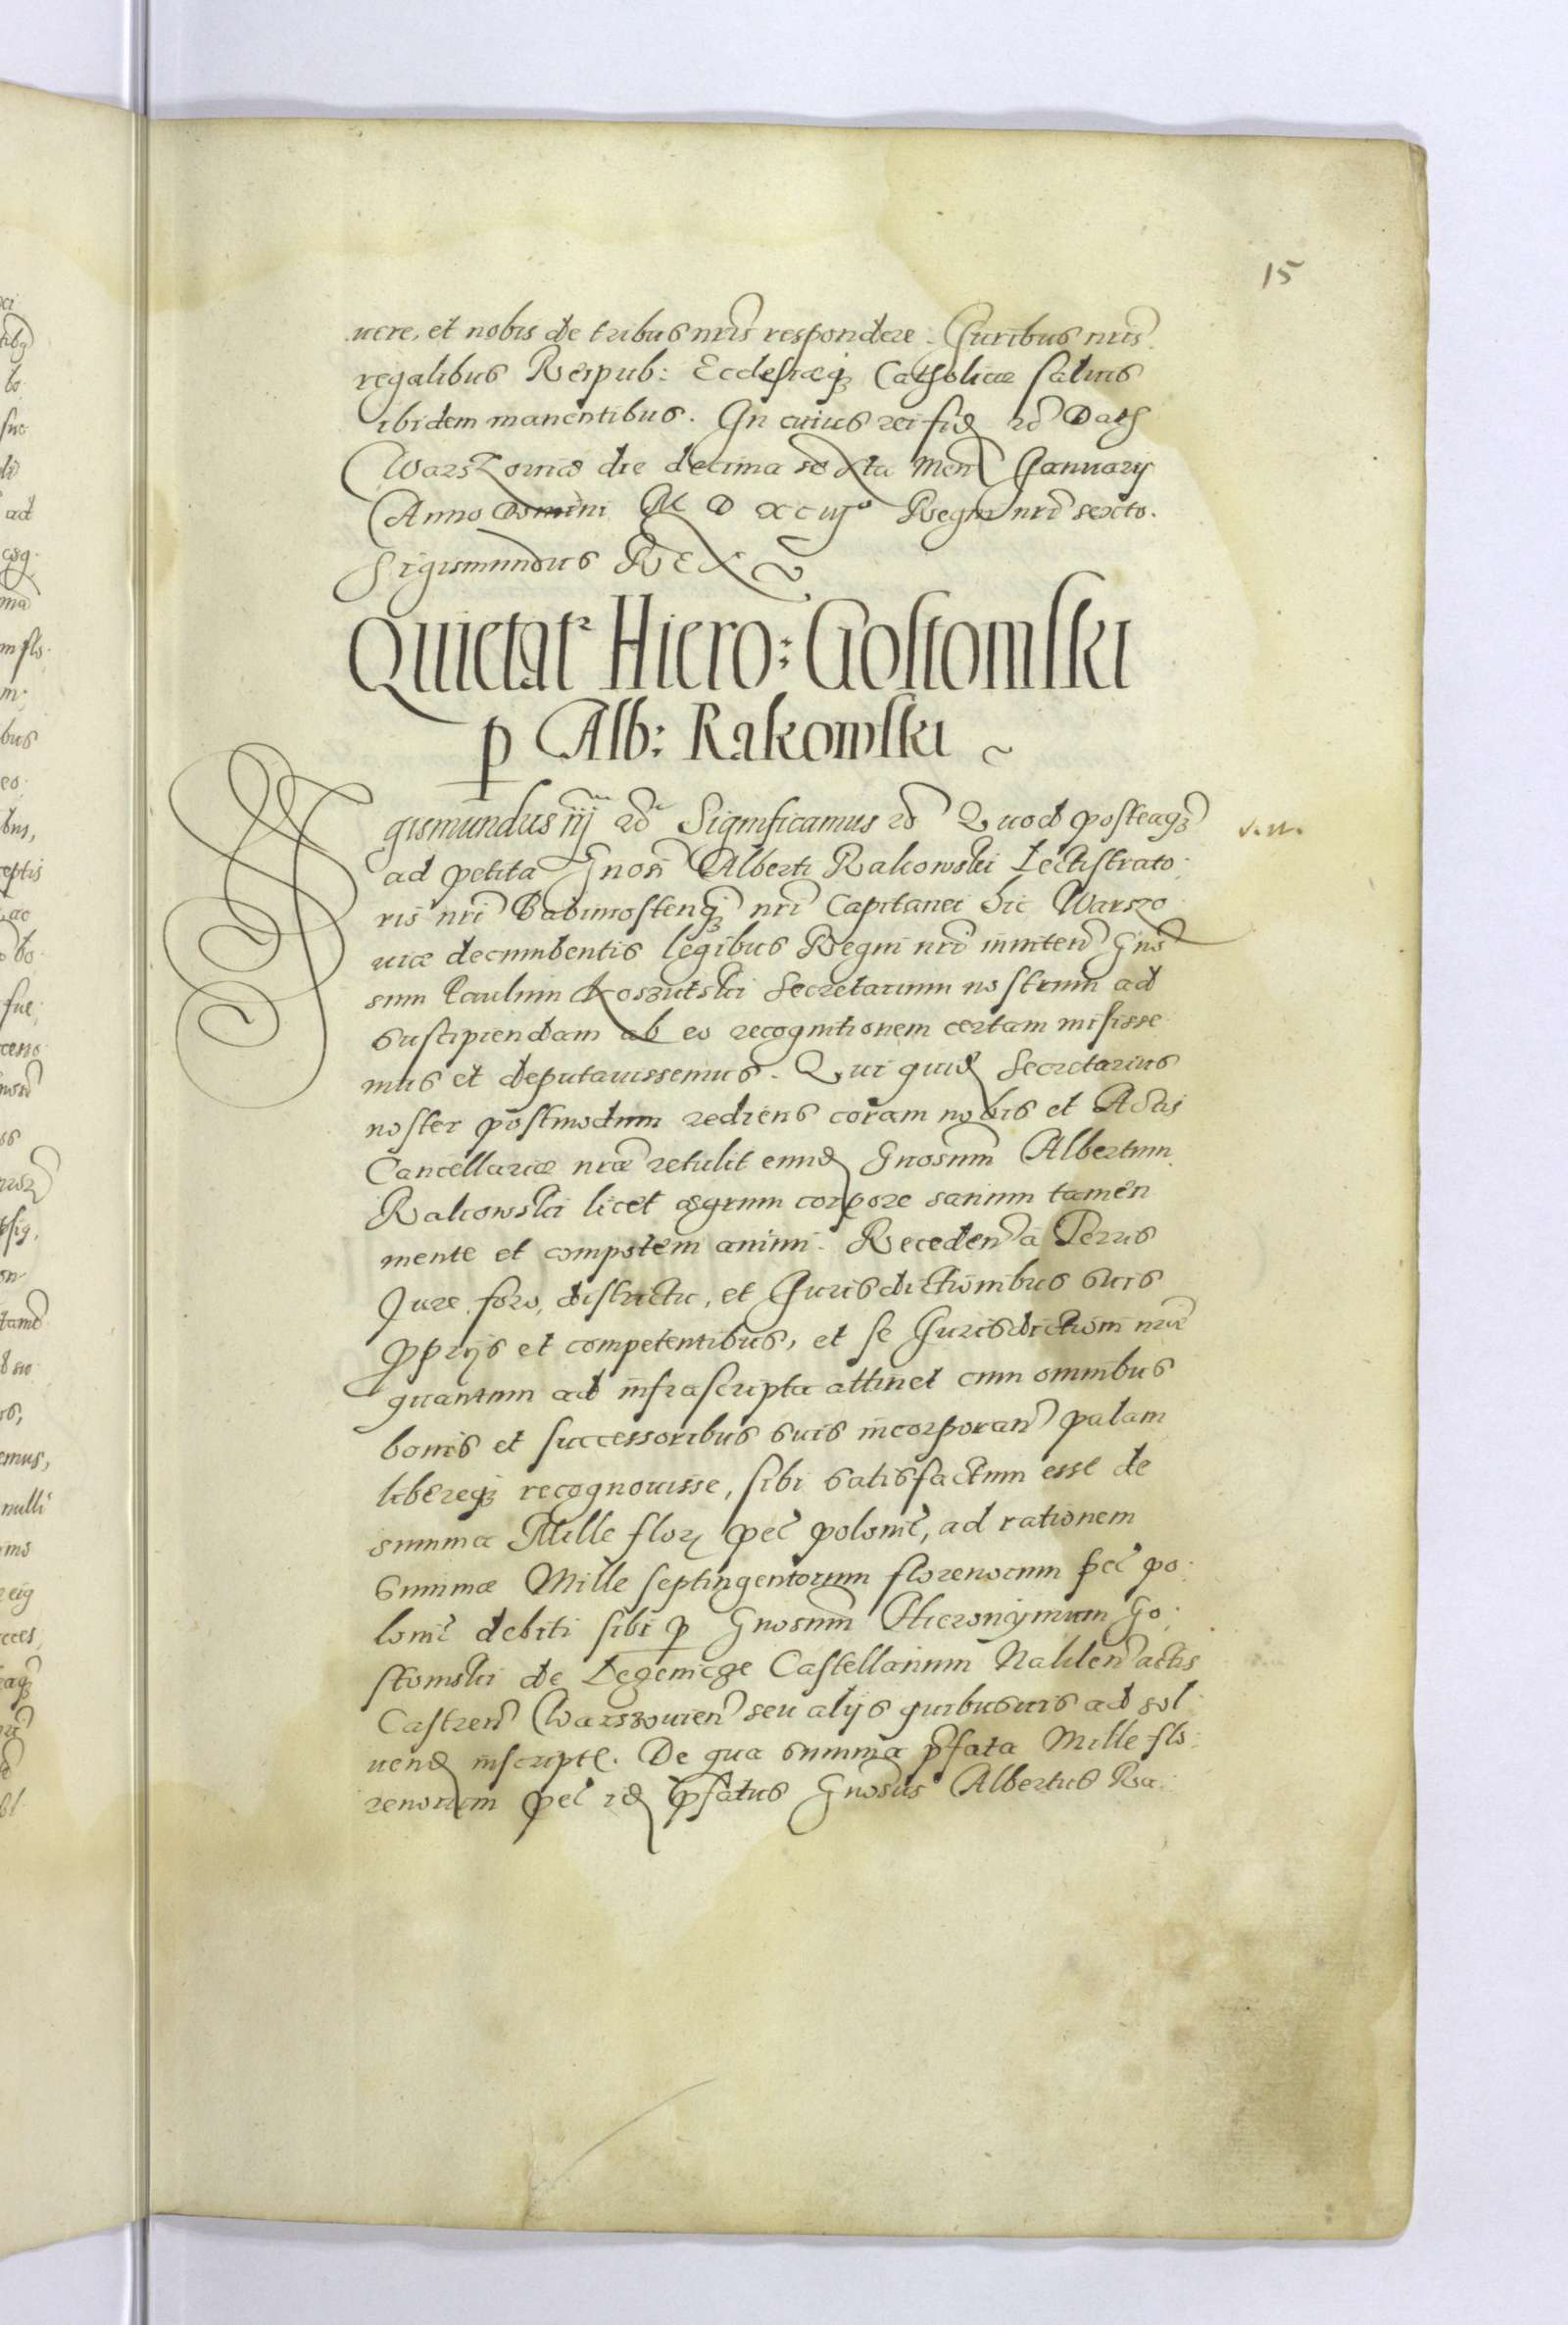 15
uere, et nobis de tribus nris respondere. Juribus nris
regalibus Reipub: Ecclesiæq3 Catholicæ saluis
ibidem manentibus. In cuius rei fid Datt
Warszouiæ die decima sexta Men Januarij
Anno Domini M D XC iij° Regni nri sexto.
Sigismundus REX
Quietat Hiero: Gostomski
p Alb: Rakowski
Sigismundus iij Significamus Quod posteaq3
ad petita Gnosi Alberti Rakowski Lectistrato
ris nri Babimosten q3 nri Capitanei hic Warszo
uiæ decumbentis legibus Regni nri inniten Gno
sum Paulum Koszutski Secretarium nostrum ad
suscipiendam ab eo recognitionem certam misisse
mus et deputauissemus. Qui quid Secretarius
noster postmodum rediens coram nobis et Actis
Cancellariæ nræ retulit eund Gnosum Albertum
Rakowski licet ægrum corpore sanum tamen
mente et compotem animi. Receden a Terris
Jure, foro, districtu, et Jurisdictionibus suis
pprijs et competentibus, et se Jurisdictioni nræ
quantum ad infrascripta attinet cum omnibus
bonis et successoribus suis incorporan palam
libereq3 recognouisse, sibi satisfactum esse de
summa Mille flor pec polonic, ad rationem
summæ Mille septingentorum florenorum pec po
lonic debiti sibi p Gnosum Hieronymum Go
stomski de Lezenicze Castellanum Naklen actis
Castren Warszouien seu alijs quibusuis ad sol
uend inscript. De qua summa pfata Mille flo
renorum pec id pfatus Gnosus Albertus Ra